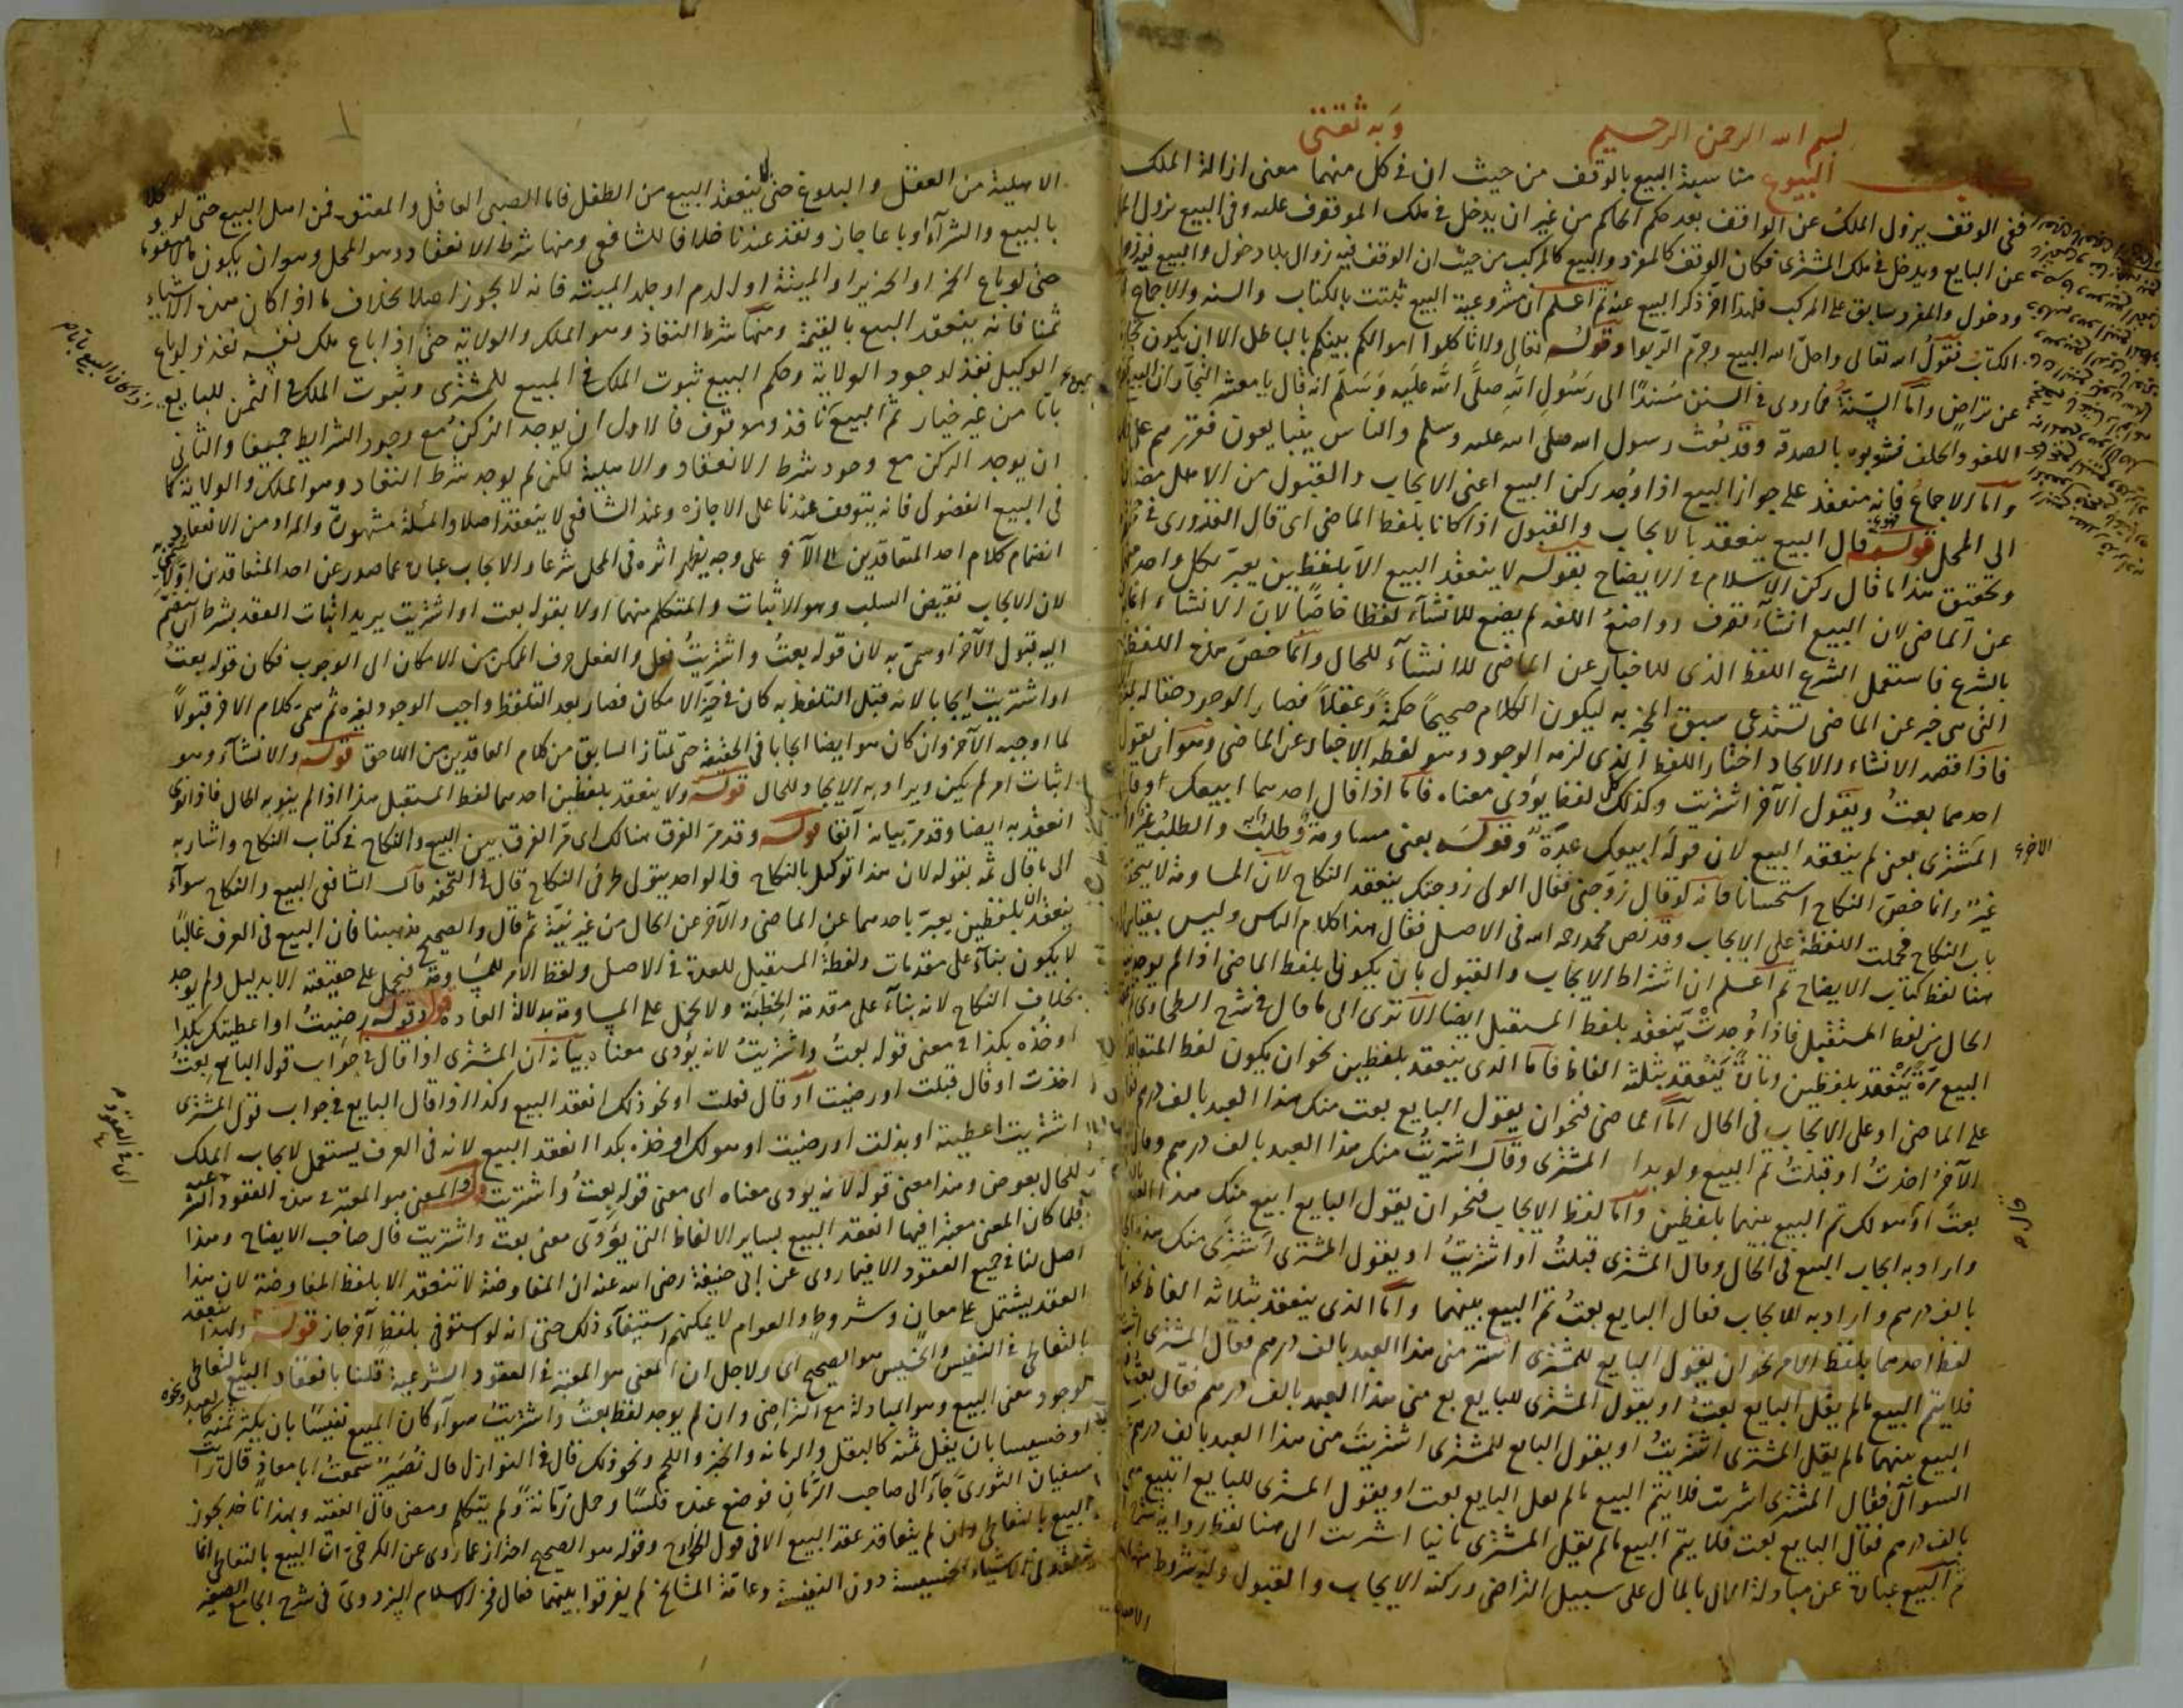 بسم الله الرحمن الرحيم وبه ثقتى
كتاب البيوع مناسبة البيع بالوقف من حيث ان فى كل منهما معنى ازالة الملك
ففى الوقف يزول الملك عن الواقف بعد حكم الحاكم من غير ان يدخل فى ملك الموقوف عليه وفى البيع يزول
عن البايع ويدخل فى ملك المشترى فكان الوقف كالمفرد والبيع كالمركب من حيث ان الوقف فيه زوال بلا دخول والبيع فيه زوال
ودخول والمفرد سابق على المركب فلهذا اخر ذكر البيع عنه ثم اعلم ان مشروعية البيع ثبتت بالكتاب والسنه والاجماع
الكتاب فقوله تعالى واحل الله البيع وحرم الربوا وقوله تعالى ولا تاكلوا اموالكم بينكم بالباطل الا ان يكون تجارة
عن تراض واما السنة فما روى فى السنن مسندا الى رسول الله صلى الله عليه وسلم انه قال يا معشر التجار ان البيع
اللغو والحلف فشوبوه بالصدقه وقد بعث رسول الله صلى الله عليه وسلم والناس يتبايعون فقررهم على
واما الاجماع فانه منعقد على جواز البيع اذا وجد ركن البيع اعنى الايجاب والقبول من الاهل مضافا
الى المحل قوله قال البيع ينعقد بالايجاب والقبول اذا كانا بلفظ الماضى اى قال القدورى فى
وتحقيق هذا ما قال ركن الاسلام فى الايضاح بقوله لا ينعقد البيع الا بلفظين يعبر بكل واحد منهما
عن الماضى لان البيع انشاء تصرف وواضع اللغه لم يضع للانشاء لفظا خاصا لان الانشاء
بالشرع فاستعمل الشرع اللفظ الذى للاخبار عن الماضى للانشاء للحال وانما خص هذه اللفظ
التى هى خبر عن الماضى تستدعى سبق المخبر به ليكون الكلام صحيحا حكمة وعقلا فصار الوجود حقا له
فاذا قصد الانشاء والايجاد اختار اللفظ الذى لزمه الوجود وهو لفظه الاخبار عن الماضى وهو ان يقول
احدهما بعت ويقول الآخر اشتريت وكذلك كل لفظ يؤدى معناه فاما اذا قال احدهما ابيعك او قال
المشترى بعنى لم ينعقد البيع لان قوله ابيعك عدة وقوله بعنى مساومة وطلب والطلب
غيره وانما خص النكاح استحسانا فانه لو قال زوجنى فقال الولى زوجتك ينعقد النكاح لان المساومة لا
باب النكاح فحملت اللفظة على الايجاب وقد نص محمد رحمه الله فى الاصل فقال هذا كلام الناس وليس بقياس
هنا لفظ كتاب الايضاح ثم اعلم ان اشتراط الايجاب والقبول بان يكونا بلفظ الماضى اذا لم يوجد
الحال من لفظ المستقبل فاذا وجدت ينعقد بلفظ المستقبل ايضا الا ترى الى ما قال فى شرح الطحاوى
البيع مرة ينعقد بلفظين وتارة ينعقد بثلثة الفاظ فاما الذى ينعقد بلفظين نحو ان يكون لفظ المتعاقدين
على الماضى او على الايجاب فى الحال اما الماضى فنحو ان يقول البايع بعت منك هذا العبد بالف درهم
الآخر اخذت او قبلت تم البيع ولو بدا المشترى وقال اشتريت منك هذا العبد بالف درهم وقال
بعت او هو لك تم البيع بينهما بلفظين واما لفظ الايجاب فنحو ان يقول البايع ابيع منك هذا العبد
واراد به ايجاب البيع فى الحال وقال المشترى قبلت او اشتريت او يقول المشترى اشترى منك هذا
بالف درهم واراد به الايجاب فقال البايع بعت تم البيع بينهما واما الذى ينعقد بثلاثة الفاظ
لفظ احدهما بلفظ الامر نحو ان يقول البايع للمشترى اشتر منى هذا العبد بالف درهم فقال المشترى
فلا يتم البيع ما لم يقل البايع بعت او يقول المشترى للبايع بع منى هذا العبد بالف درهم فقال بعت
البيع بينهما ما لم يقل المشترى اشتريت او يقول البايع للمشترى اشتريت منى هذا العبد بالف درهم
السوال فقال المشترى اشريت فلا يتم البيع ما لم يقل البايع بعت او يقول المشترى للبايع اتبيع منى
بالف درهم فقال البايع بعت فلا يتم البيع ما لم يقل المشترى ثانيا اشريت الى هنا لفظ رواية شرح
ثم البيع عبارة عن مبادلة المال بالمال على سبيل التراضى وركنه الايجاب والقبول وله شروط منها
الاهلية من العقل والبلوغ حتى لا ينعقد البيع من الطفل فاما الصبى العاقل والمعتوه فمن اهل البيع حتى لو وكلا
بالبيع والشرآء او باعا جاز ونفذ عندنا خلافا للشافعى ومنها شرط الانعقاد وهو المحل وهو ان يكون مالا متقوما
حتى لو باع الخمر او الخنزير او الميتة او الدم او جلد الميته فانه لا يجوز اصلا بخلاف ما اذا كان هذه الاشياء
ثمنا فانه ينعقد البيع بالقيمة ومنها شرط النفاذ وهو الملك والولاية حتى اذا باع ملك نفسه نفذ ولو باع
الوكيل نفذ لوجود الولاية وحكم البيع ثبوت الملك فى المبيع للمشترى وثبوت الملك فى الثمن للبايع
باتا من غير خيار ثم البيع نافذ وموقوف فالاول ان يوجد الركن مع وجود الشرايط جميعا والثانى
ان يوجد الركن مع وجود شرط الانعقاد والاهلية لكن لم يوجد شرط النفاد وهو الملك والولاية كما
فى البيع الفضولى فانه يتوقف عندنا على الاجازه وعند الشافعى لا ينعقد اصلا والمسئلة مشهورة والمراد من الانعقاد
انضمام كلام احد المتعاقدين الى الآخر على وجه يظهر اثره فى المحل شرعا والايجاب عبارة عما صدر عن احد المتعاقدين اولا
لان الايجاب نقيض السلب وهو الاثبات والمتكلم منهما اولا بقوله بعت او اشتريت يريد اثبات العقد بشرط ان يضم
اليه قبول الآخر او سمى به لان قوله بعت واشتريت فعل والفعل صرف الممكن من الامكان الى الوجوب فكان قوله بعت
او اشتريت ايجابا لانه قبل التلفظ به كان فى حيز الامكان فصار بعد التلفظ واجب الوجود لغيره ثم سمى كلام الاخر قبولا
لما اوجبه الآخر وان كان هو ايضا ايجابا فى الحقيقة حتى يمتاز السابق من كلام العاقدين من اللاحق قوله والانشآء وهو
اثبات امر لم يكن ويراد به الايجاد للحال قوله ولا ينعقد بلفظين احدهما لفظ المستقبل هذا اذا لم ينو به الحال فاذا نوى
انعقد به ايضا وقد مر بيانه آنفا قوله وقد مر الفرق هنالك اى مر الفرق بين البيع والنكاح فى كتاب النكاح واشار به
الى ما قال ثمه بقوله لان هذا توكيل بالنكاح والواحد يتولى طرفى النكاح قال فى التحفه قال الشافعى البيع والنكاح سوآء
ينعقد بلفظين يعبر باحدهما عن الماضى والآخر عن الحال من غير نية ثم قال والصحيح مذهبنا فان البيع فى العرف غالبا
لا يكون بنآء على مقدمات ولفظة المستقبل للعدة فى الاصل ولفظ الامر للمساومة فيحمل على حقيقته الا بدليل ولم يوجد
بخلاف النكاح لانه بنآء على مقدمة الخطبة ولا يحمل على المساومة بدلالة العادة قوله وقوله رضيت او اعطيتك بكذا
او خذه بكذا فى معنى قوله بعت واشتريت لانه يؤدى معناه بيانه ان المشترى اذا قال فى جواب قول البايع بعت
اخذت او قال قبلت او رضيت او قال فعلت او نحو ذلك انعقد البيع وكذا اذا قال البايع فى جواب قول المشترى
اشتريت اعطيته او بذلت او رضيت او هو لك او خذه بكذا انعقد البيع لانه فى العرف يستعمل لايجاب الملك
للحال بعوض وهذا معنى قوله لانه يودى معناه اى معنى قوله بعت واشتريت قوله والمعنى هو المعتبر فى هذه العقود
فلما كان المعنى معتبرا فيها انعقد البيع بساير الالفاظ التى يؤدى معنى بعت واشتريت قال صاحب الايضاح وهذا
اصل لنا فى جميع العقود الا فيما روى عن ابى حنيفة رضى الله عنه ان المفاوضة لا تنعقد الا بلفظ المفاوضة لان هذا
العقد يشتمل على معان وشروط والعوام لا يمكنهم استيفآء ذلك حتى انه لو استوفى بلفظ آخر جاز قوله ولهذا ينعقد
بالتعاطى فى النفيس والخسيس هو الصحيح اى ولاجل ان المعنى هو المعتبر فى العقود الشرعية قلنا بانعقاد البيع بالتعاطى
لوجود معنى البيع وهو المبادلة مع التراضى وان لم يوجد لفظ بعت واشتريت سوآء كان المبيع نفيسا بان يكثر ثمنه كالعبد ونحوه
او خسيسا بان يقل ثمنه كالبقل والرمانه والخبز واللحم ونحو ذلك قال فى النوازل قال نصير سمعت ابا معاذ قال رايت
سفيان الثورى جآء الى صاحب الرمان فوضع عنده فلسا وحمل رمانة ولم يتكلم ومضى قال الفقيه وبهذا ناخذ يجوز
البيع بالتعاطى وان لم يتعاقد عقد البيع الا فى قول وقوله هو الصحيح احتراز عما روى عن الكرخى ان البيع بالتعاطى انما
ينعقد فى الاشياء الخسيسة دون النفيسة وعامة المشايخ لم يفرقوا بينهما فقال فخر الاسلام البزدوى فى شرح الجامع الصغير